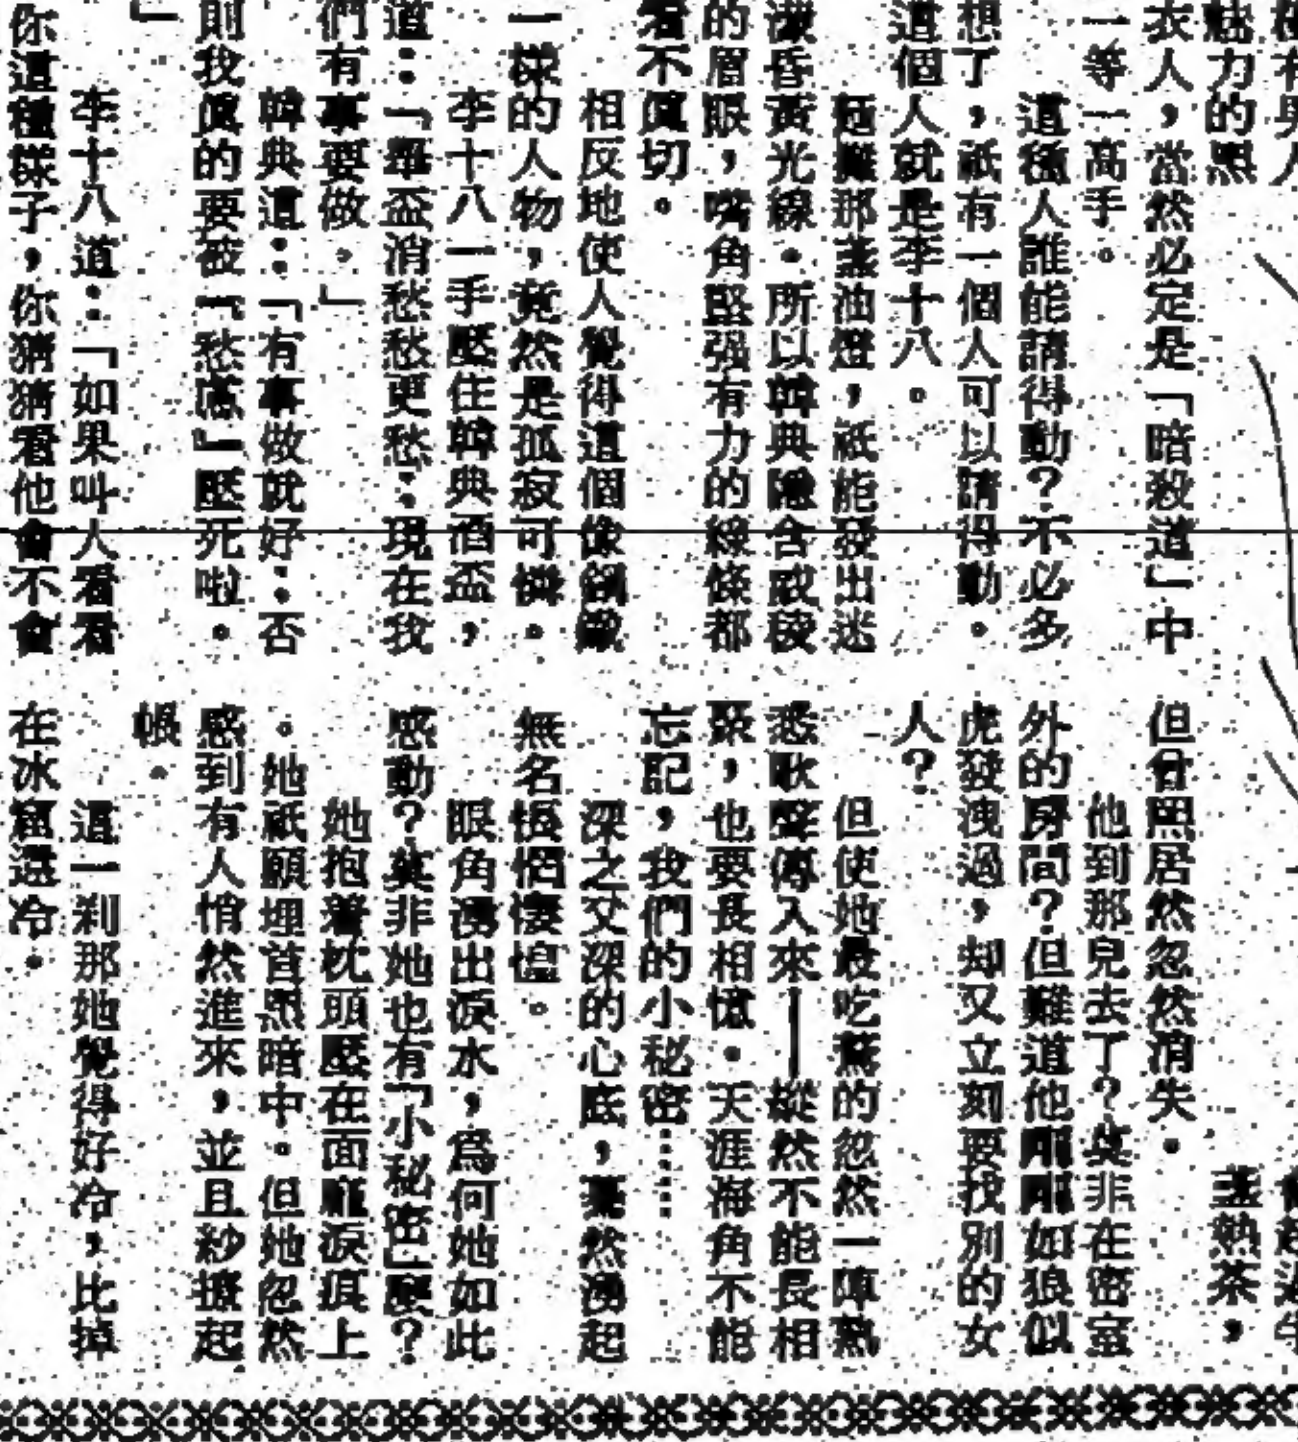 魅力的黑
衣人，當然必定是「暗殺道」中
一等一高手。
這種人誰能請得動？不必多
想了，祇有一個人可以請得動。
這個人就是李十八。
極攤那盞油燈，祇能發出迷
濛昏黃光線。所以韓典隱含威稜
的眉眼，嘴角堅强有力的線條都
看不眞切。
相反地使人覺得這個像
一樣的人物，竟然是孤寂可憐。
李十八一手壓住韓典酒盃，
道：「舉盃消愁愁更愁；現在我
們有事要做。」
韓典道：「有事做就好；否
則我眞的要被『愁』壓死啦。
」
李十八道：「如果叫人看看
你這種樣子，你猜猜看他會不會
盞熱茶，
但曾照居然忽然消失。
他到那兒去了？莫非在密室
外的房間？但難道他剛剛如狼似
虎發洩過，却又立刻要找別的女
人？
但使她最吃驚的忽然一陣熟
悉歌聲傳入來——縱然不能長相
聚，也要長相憶。天涯海角不能
忘記，我們的小秘密……
深之又深的心底，驀然湧起
無名悵惘悽惶。
眼角湧出淚水，爲何她如此
感動？莫非她也有「小秘密」麼？
她抱着枕頭壓在面龐淚痕上
。她祇願埋首黑暗中。但她忽然
感到有人悄然進來，並且紗撩起
帳。
這一刹那她覺得好冷，比掉
在冰窟還冷。